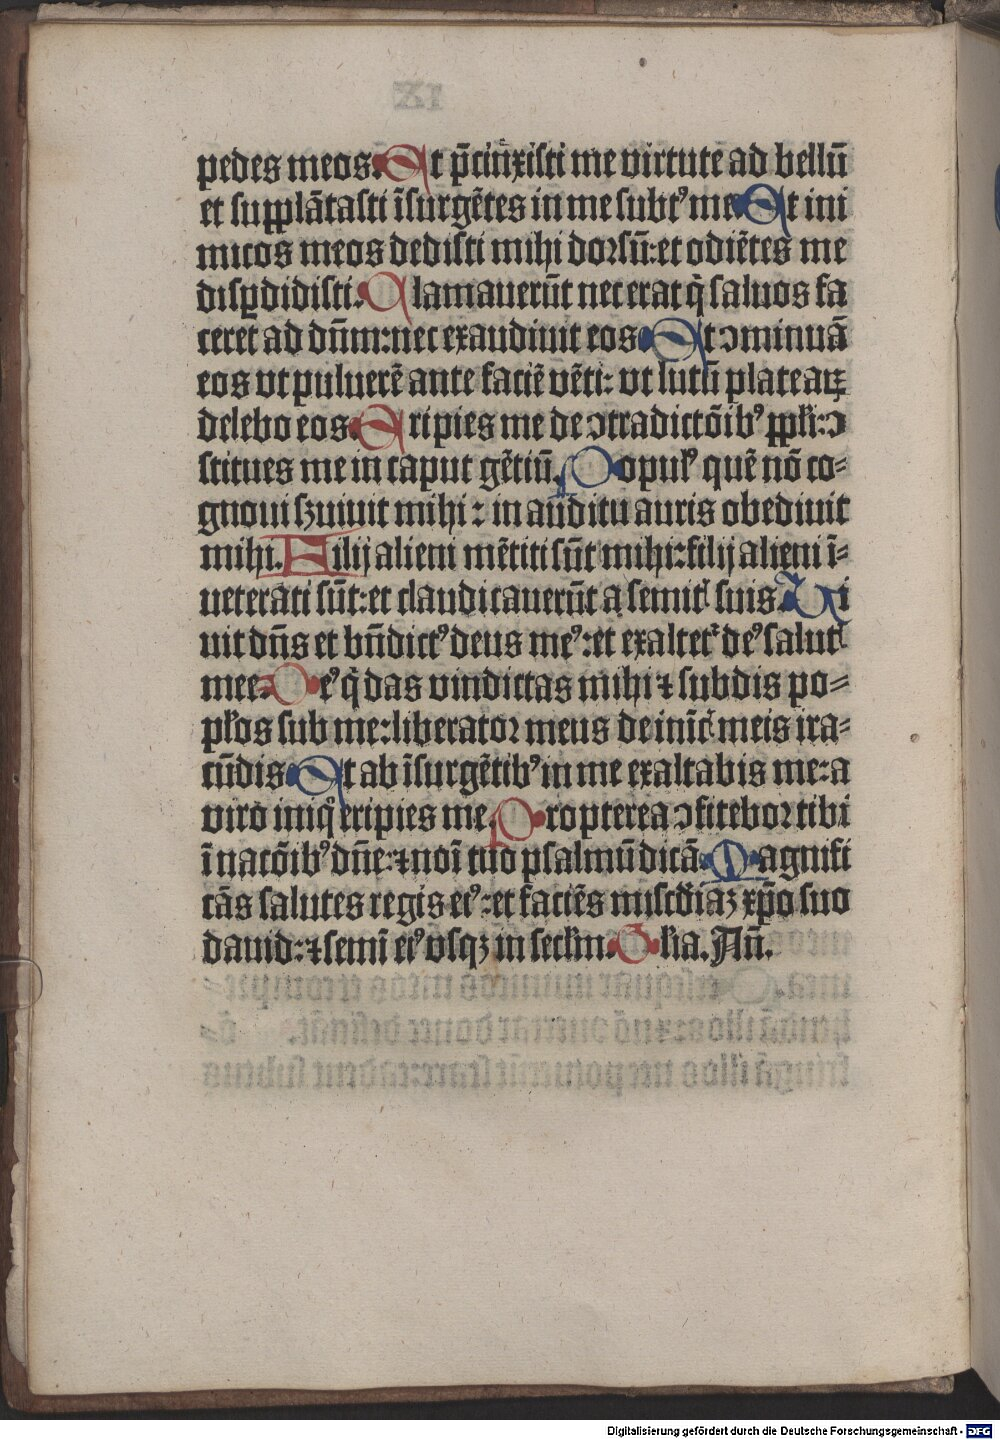 pedes meos. Et p̄cinxisti me virtute ad bellū
et supplātasti īsurgētes in me subtꝰ me Et ini
micos meos dedisti mihi dorsū: et odiētes me
disꝑdidisti. Clamauerūt nec erat q̇ saluos fa
ceret ad dn̄m: nec exaudiuit eos Et ↄminuā
eos vt puluerē ante faciē vēti: vt lutū plateaꝝ
delebo eos. Eripies me de ↄtradictōibꝰ ppl̄i: ↄ
stitues me in caput gētiū. Popul̕ quē nō co⸗
gnoui ẜuiuit mihi: in auditu auris obediuit
mihi. Filij alieni mētiti sūt mihi: filij alieni ī⸗
ueterati sūt: et claudicauerūt a semit̕ suis. Vi
uit dn̄s et bn̄dictꝰ deus meꝰ: et exaltet̕ deꝰ salut̕
mee. Deꝰ q̇ das vindictas mihi ⁊ subdis po⸗
pl̄os sub me: liberator meus de inīc̕ meis ira⸗
cūdis Et ab īsurgētibꝰ in me exaltabis me: a
viro iniqͦ eripies me. Propterea ↄfitebor tibi
ī nacōibꝰ dn̄e: ⁊ noī tuo psalmū dicā. Magnifi
cās salutes regis eiꝰ: et faciēs mīscd̄iaꝫ xp̄o suo
dauid: ⁊ semī eiꝰ vsqꝫ in secl̄m. Gl̄ia. An̄.
Digitalisierung gefördert durch die Deutsche Forschungsgemeinschaft - DFG